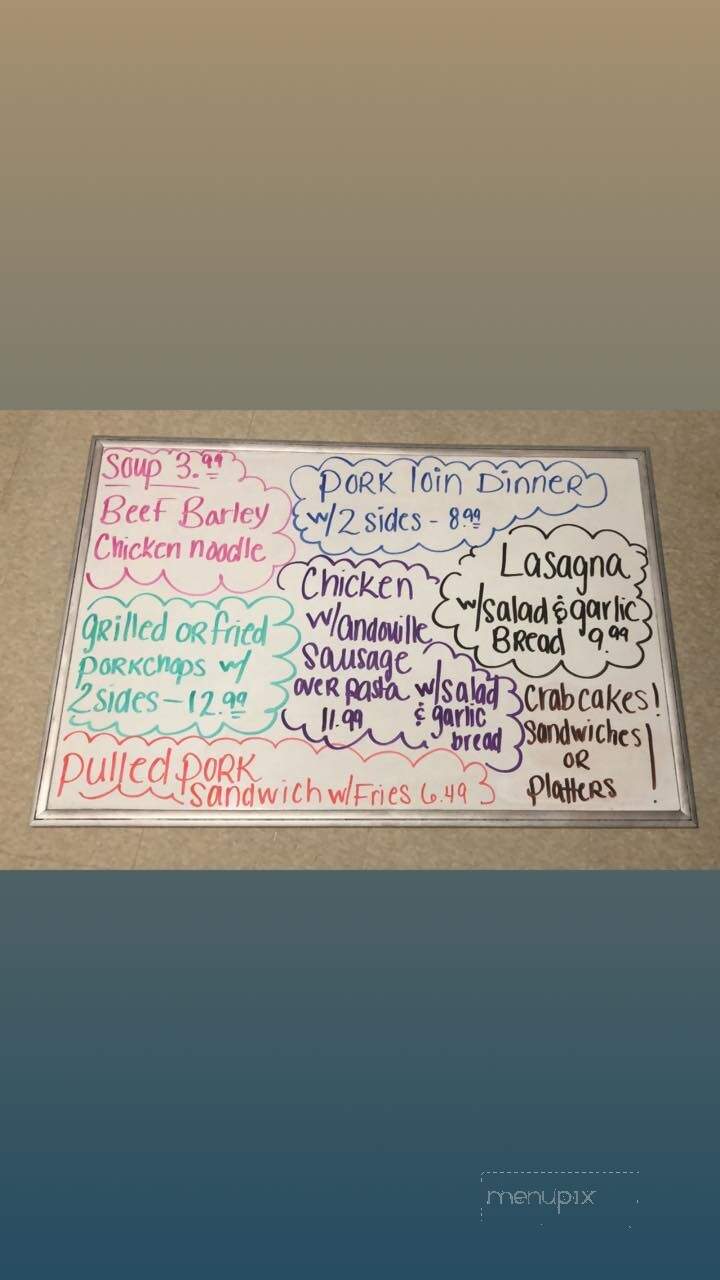 Soup 3.99
Beef Barley
Chicken noodle
PORK loin Dinner
w/2 sides - 8.99
Lasagna
w/salad & garlic
Bread 9.99
grilled OR fried
PORKCHOPS w/
2 sides - 12.99
Chicken
w/andouille
sausage
over pasta w/salad
11.99 & garlic
bread
Crab cakes!
Sandwiches!
OR
Platters
Pulled PORK
Sandwich w/Fries 6.49
menupix